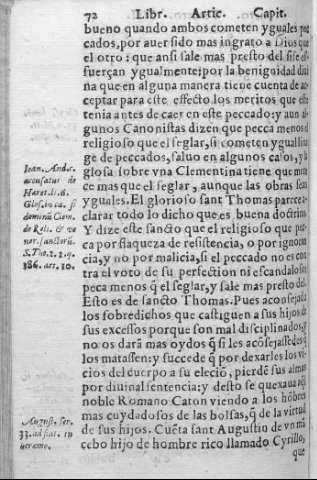 72 Libr. Artic. Capit.
bueno quando ambos cometen yguales pe
cados, por auer sido mas ingrato a Dios que
el otro: que ansi sale mas presto del si se es-
fuerçan ygualmente: por la benignidad diui
na que en alguna manera tiene cuenta de ac-
ceptar para este effecto los meritos que este
tenia antes de caer en este peccado: y aun al-
gunos Canonistas dizen que pecca menos el
religioso que el seglar, si cometen ygual lina
ge de peccados, saluo en algunos casos, y la
glosa sobre vna Clementina tiene que mere
ce mas que el seglar, aunque las obras sean
yguales. El glorioso sant Thomas parece a-
clarar todo lo dicho que es buena doctrina
Y dize este sancto que el religioso que pec-
ca por flaqueza de resistencia, o por ignoran
cia, y no por malicia, si el peccado no es con
tra el voto de su perfection ni escandaloso
peca menos q̃ el seglar, y sale mas presto del
Esto es de sancto Thomas. Pues aconsejada
los sobredichos que castiguen a sus hijos de
sus excessos porque son mal disciplinados, y
no os darã mas oydos q̃ si les acõsejassedes q̃
los matassen: y succede q̃ por dexarles los vi-
cios del cuerpo a su eleciõ, pierdẽ sus almas
por diuinal sentencia: y desto se quexaua aq̃l
noble Romano Caton viendo a los hõbres
mas cuydadosos de las bolsas, q̃ de la virtud
de sus hijos. Cuẽta sant Augustin de vn mã
cebo hijo de hombre rico llamado Cyrillo,
que
Ioan. And. c.
de
Haret. li. 6.
Glos. in ca. si
Clem.
de Reli. & ve
ner. sanctorũ.
S. Tho. 2. 2. q.
186. art. 10.
August. ser.
33. ad frat. in
eremo.